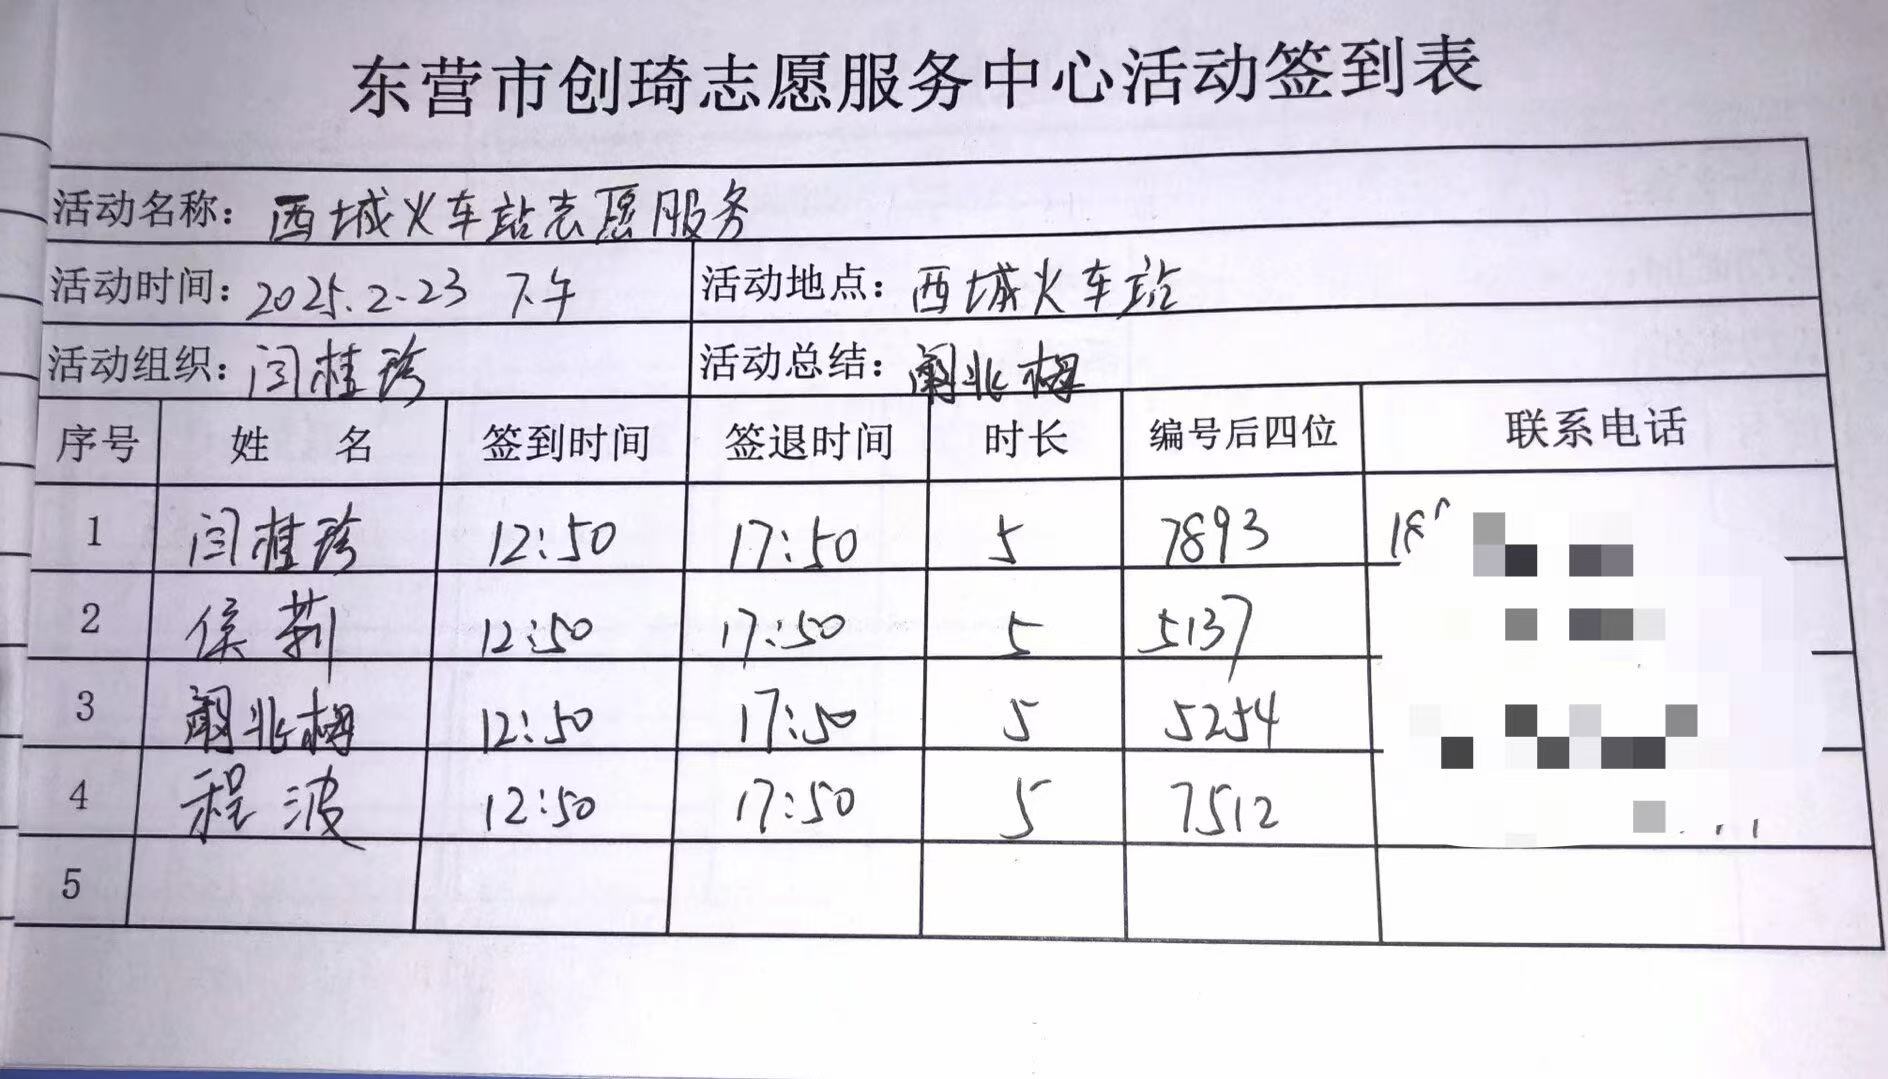 东营市创琦志愿服务中心活动签到表
活动名称：西城火车站志愿服务
活动时间：2025.2.23 下午 活动地点：西城火车站
活动组织：闫桂珍 活动总结：
序号 姓 名 签到时间 签退时间 时长 编号后四位 联系电话
1 闫桂珍 12:50 17:50 5 7893 18
2 侯莉 12:50 17:50 5 5137
3 12:50 17:50 5 5254
4 程波 12:50 17:50 5 7512
5